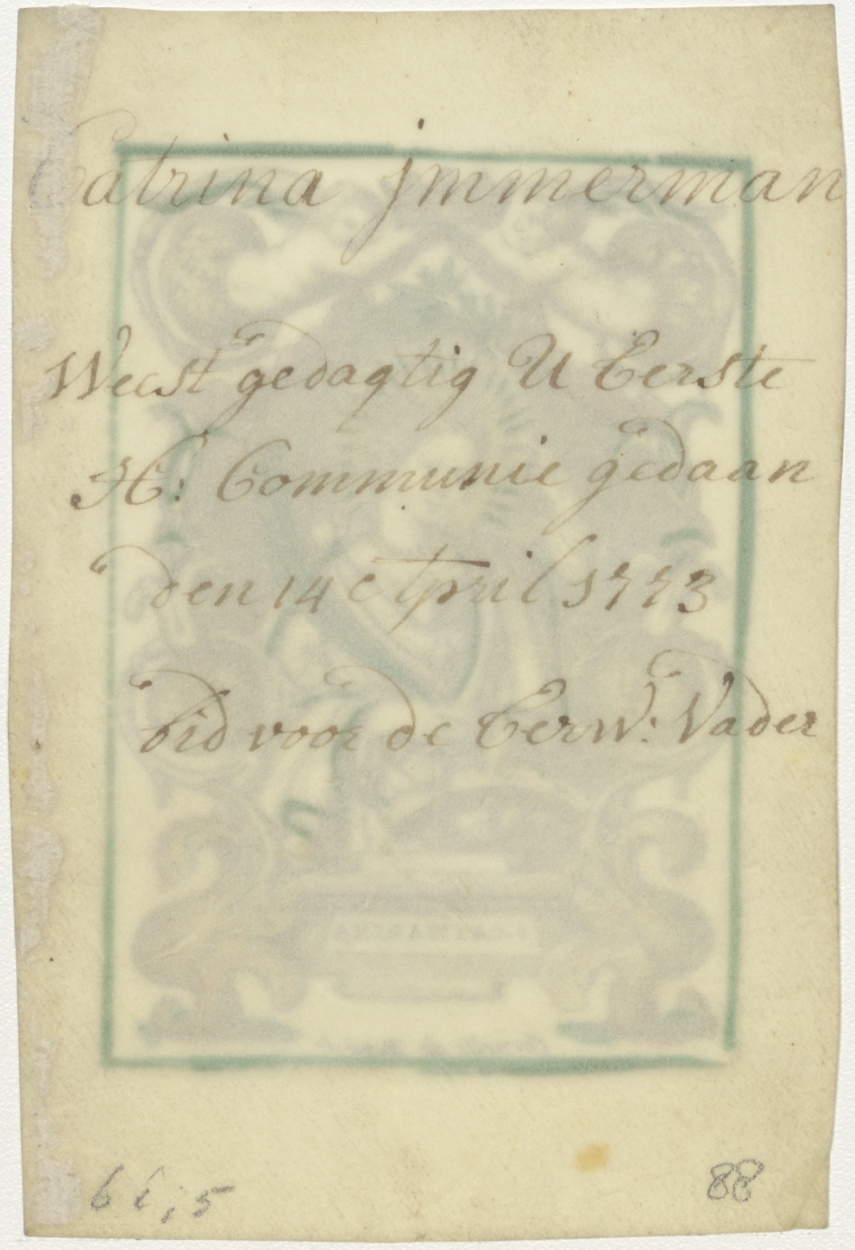 Catrina jmmerman
Weest gedagtig U Eerste
H: Communie gedaan
den 14 April 1773
bid voor de Eerw: Vader
88